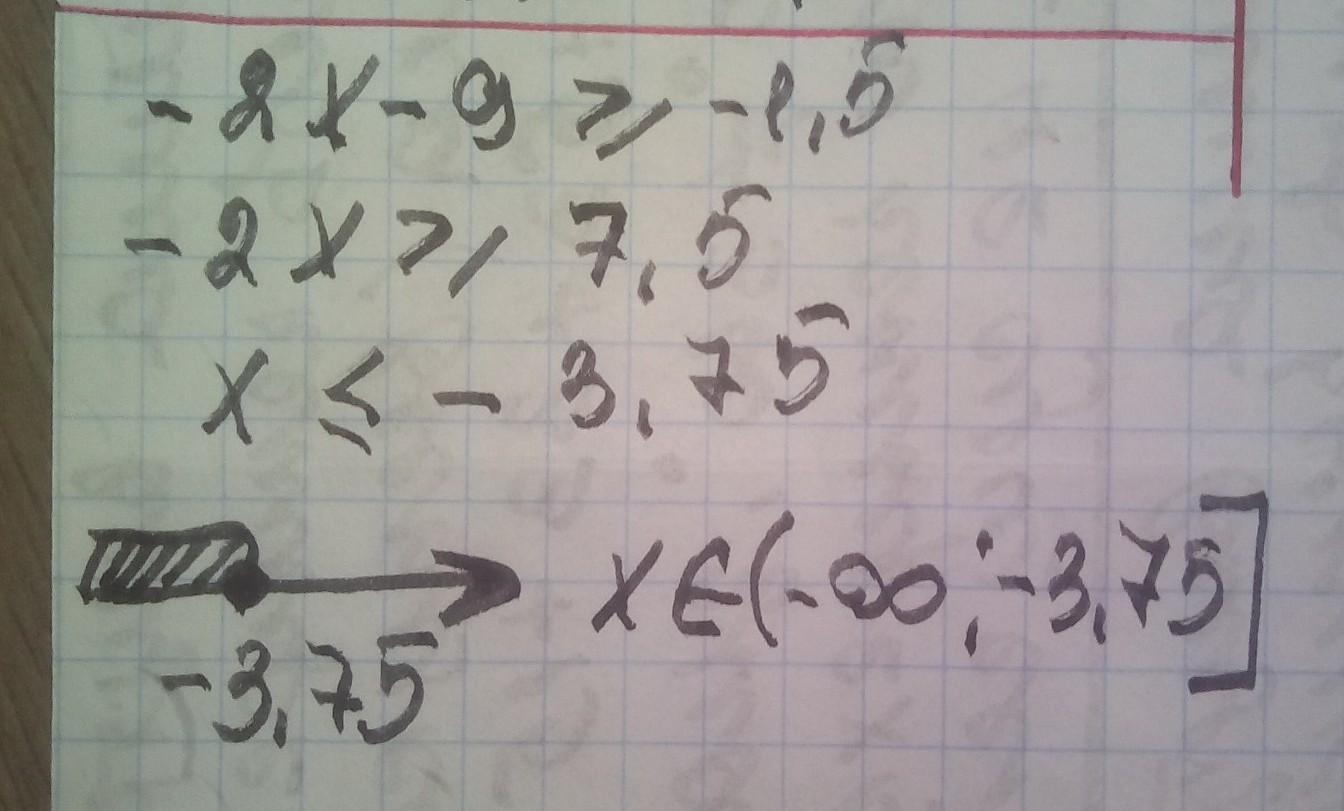 -2x-9 ⩾ -1,5
-2x ⩾ 7,5
x ≤ -3,75
x∈(-∞;-3,75]
-3,75